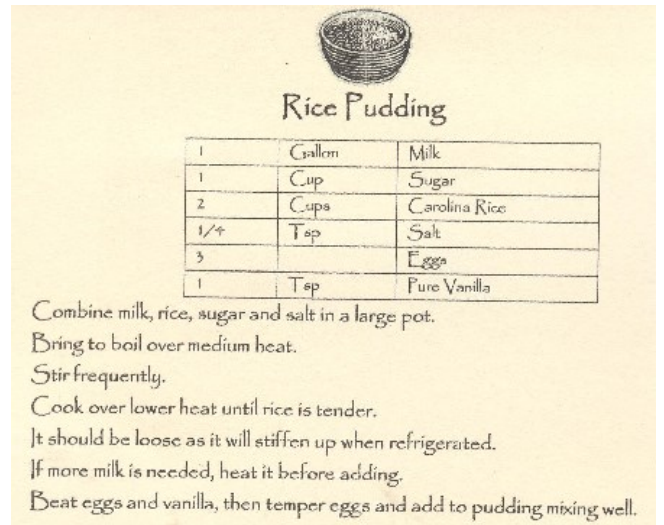 Rice Pudding
1 Gallon Milk
1 Cup Sugar
2 Cups Carolina Rice
1/4 Tsp Salt
3 Eggs
1 Tsp Pure Vanilla
Combine milk, rice, sugar and salt in a large pot.
Bring to boil over medium heat.
Stir frequently.
Cook over lower heat until rice is tender.
It should be loose as it will stiffen up when refrigerated.
If more milk is needed, heat it before adding.
Beat eggs and vanilla, then temper eggs and add to pudding mixing well.